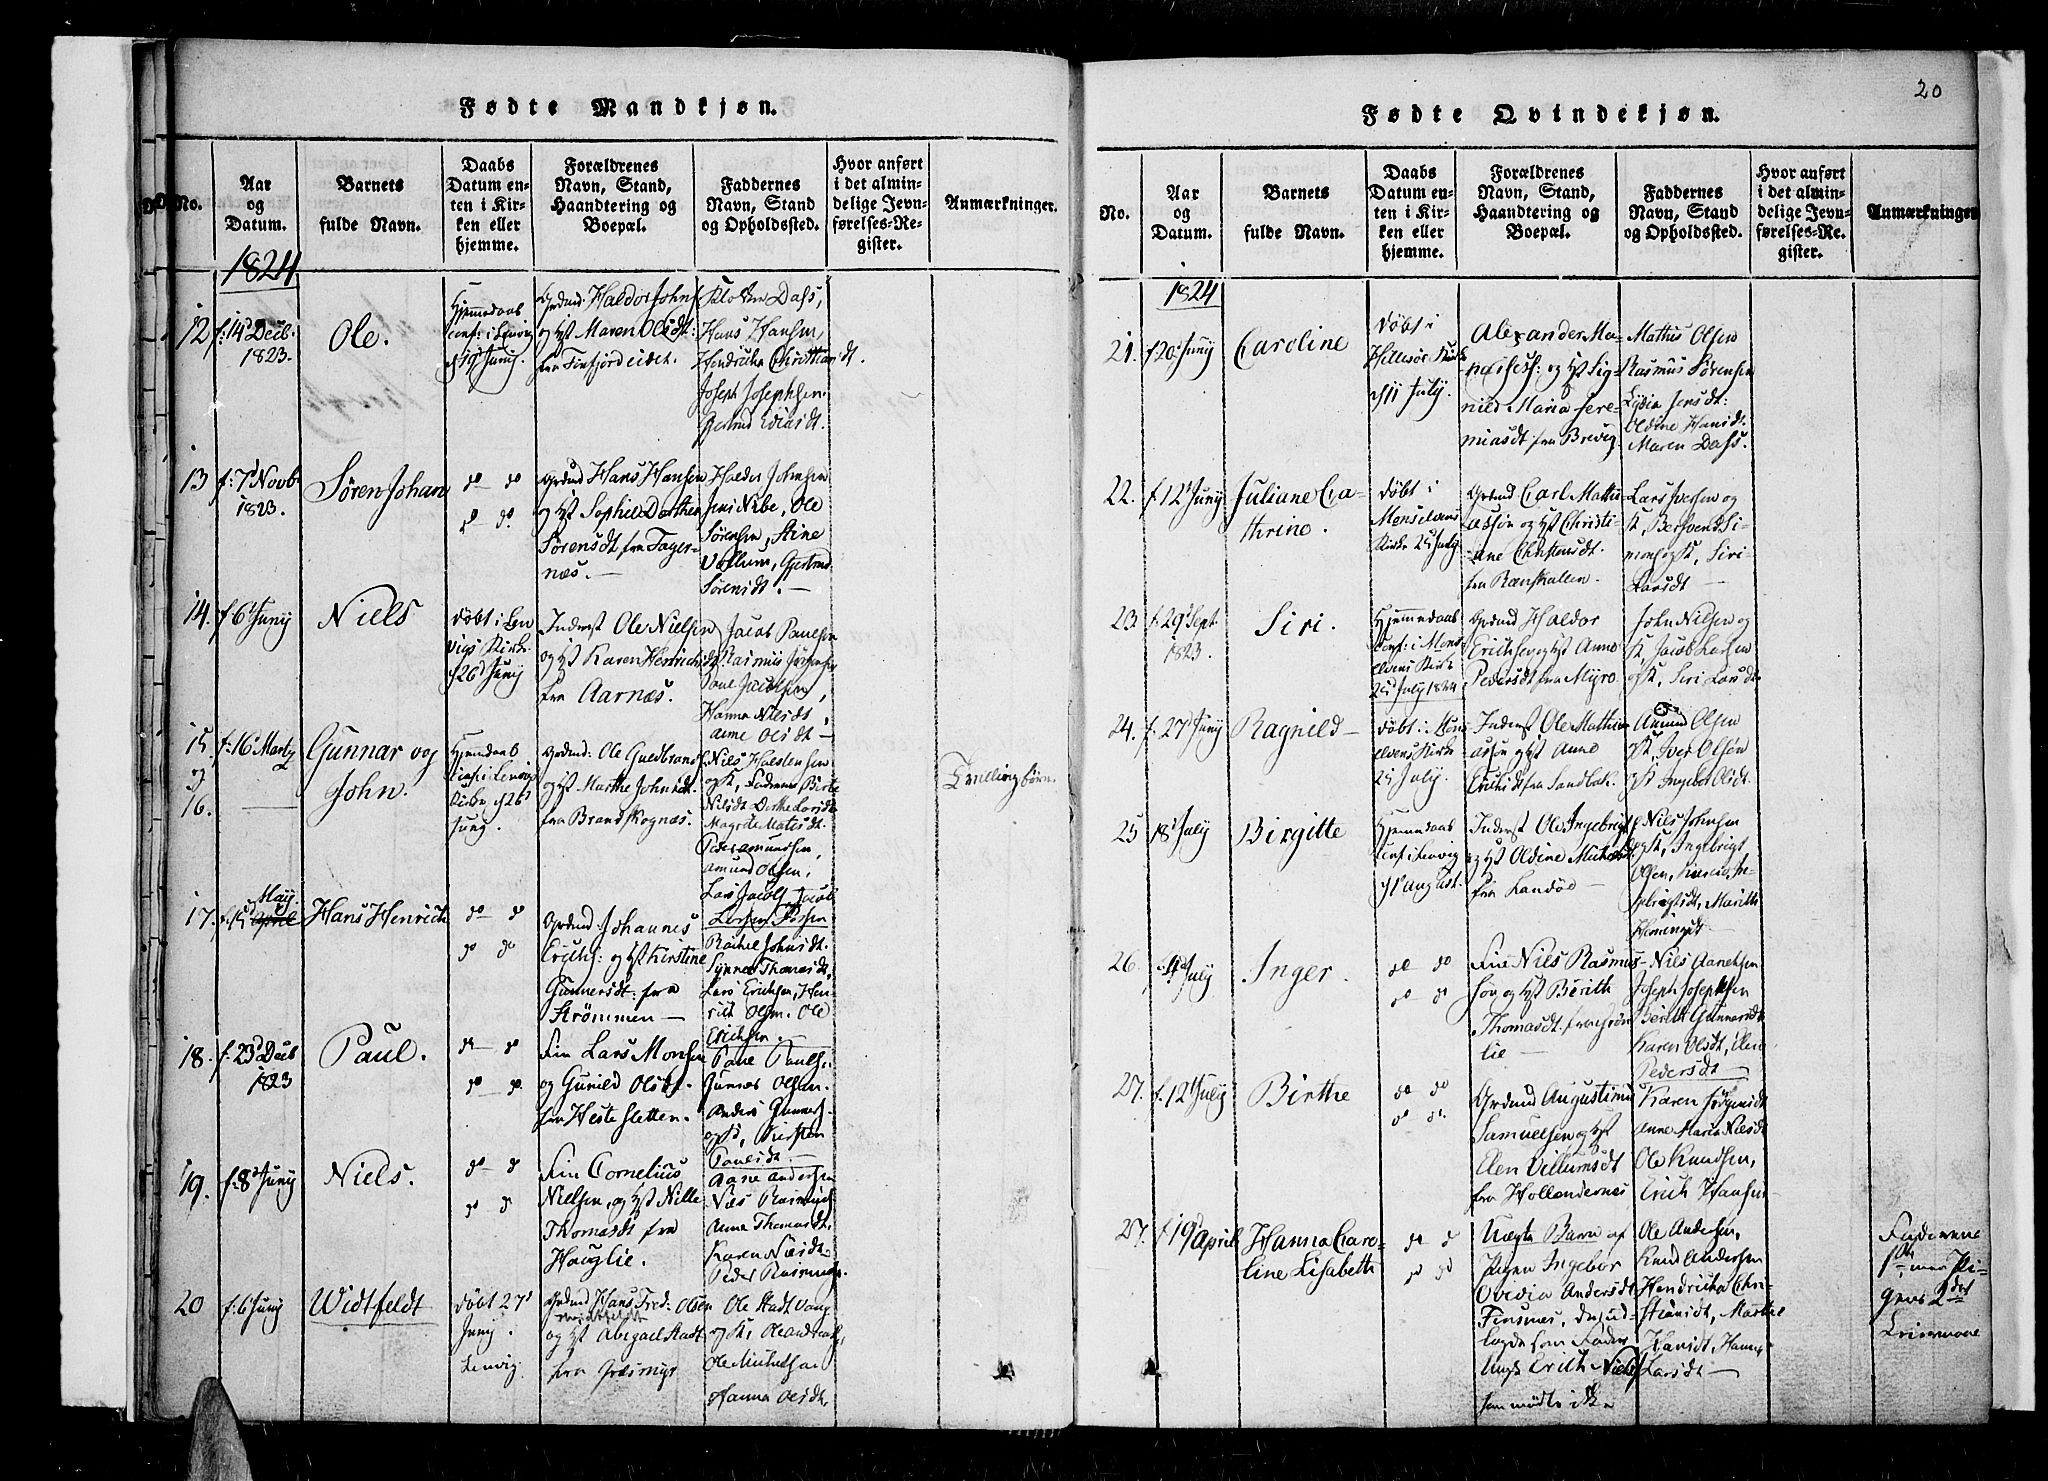 Fødte Mandkjøn.
No.
Aar
og
Datum.
Barnets
fulde Navn.
Daabs
Datum en-
ten i Kir-
ken eller
hjemme.
Forældrenes
Navn, Stand,
Haandtering og
Boepæl.
Faddernes
Navn, Stand
og Opholdssted.
Hvor anført
i det almin-
delige Jevn-
førelses-Re-
gister.
Anmærkninger.
1824
12
f: 14 Decb:
1823.
Ole.
Hjemmedaab
conf: i Lenvig
d 19 Juny.
Grdmd: Haldor Johns
og Hst Maren Olsdt:
fra Finfjordeidet.
Dass,
Hans Hansen,
Hendricha Christiansdt.
Joseph Josephsen
Gjertrud Eliasdt.
13
f: 7 Novb.
1823.
Søren Johan
do do
do do.
Grdmd Hans Hansen
og Hst Sophie Dorthea
Sørensdt fra Tager-
næs.
Haldor Johnsen
Jens Nibe, Ole
Sørensen, Stine
Vollum, Gjertrud
Sørensdt.
14.
f. 6 Juny
Niels
Døbt i Len
vigs Kirke
d 26 Juny
Inderst Ole Nielsen
og Hst Karen Henrichsdt
fra Aarnæs.
Jacob Paulsen
Rasmus
Paul Jacobsen,
Hanna Nilsdt,
Anne Olsdt
15
og
16.
f: 16 Marty
Gunnar og
John.
Hjemedaab
Conf: i Lenvigs
Kirke d 26
Juny.
Grdmd: Ole Guldbrands
og Hst Marthe Johnsdt
fra Brandskognæs.
Niels Halstensen
og K, Birte
Nilsdt Dorthe Larsdt
Magrete Matisdt.
Peder Amundsen,
Amund Olsen,
Lars Jacobs
Trillingbørn.
17.
May.
f. 15 April
Hans Henrich
do do
do do
Grdmd: Johannes
Erichs: og Hst Kirstine
Gunnersdt: fra
Strømmen
Jacob
Larsen
Rachel Johnsdt.
Synnev Thomasdt,
Lars Ericksen, Hen-
rich Olsen. Ole
Erichsen.
18.
f: 23 Decb
1823
Paul.
do do
do do.
Fin Lars Monsen
og Gunild Olsdt.
fra Hestesletten.
Paul Pauls.
Gunner Olsen.
Anders Gunners
og K, Kirsten
Paulsdt.
19.
f: 8 Juny
Niels.
do do
do do
Fin Cornelius
Nielsen, og Hst Nille
Thomasdt fra
Hauglie.
Aane Andersen
Nils Rasmus
Anne Thomasdt,
Karen Nilsdt
Peder Rasmus.
20
f: 6 Juny
Widtfeldt
Døbt 27
Juny.
Lenvig.
Grdmd Hans Fred: Olsen
Widtfeldt
og Hst Abigael Stadt
fra Græsmyr
Ole Stadt
og K, Ole Andreas,
Ole Michelsen
Hanna Olsdt,
20
Fødte Qvindekjøn.
No.
Aar
og
Datum.
Barnets
fulde Navn.
Daabs
Datum en-
ten i Kir-
ken eller
hjemme.
Forældrenes
Navn, Stand,
Haandtering og
Boepæl.
Faddernes
Navn, Stand
og Opholdssted.
Hvor anført
i det almin-
delige Jevn-
førelses-Re-
gister.
Anmærkninger
1824
21.
f 20 Juny
Caroline
Døbt i
Hillesøe Kirke
d 11 July.
Alexander Ma-
nasses: og Hst Sig-
nild Maria Jere-
miasdt fra Brevig
Mathis Olsen
Rasmus Sørensen
Lydia Jensdt:
Oldine Hansdt.
Maren Dass.
22.
f. 12 Juny
Juliane Ca-
thrine.
Døbt i
Monselvens
Kirke 25 July
Grdmd Carl Matti-
assøn og Hst Christi-
ane Christensdt.
fra Rænskallen.
Lars Iversen og
K, Bersvend Si-
mons og K, Siri
Larsdt
23
f. 29 Sept.
1823.
Siri.
Hjemmedaab
Conf: i Mons
elvens Kirke
25 July 1824
Grdmd Haldor
Erichsen og Hst Anne
Pedersdt fra Myre
John Nilsen og
K Jacob Larsen
og K, Siri Larsdt
24.
f. 27 Juny
Ragnild
Døbt i Mons
elvens Kirke
25 July.
Inderst Ole Mathi-
assøn og Hst Anne
Erichsdt fra Sandbak.
Amund Olsen
og K, Iver Olsøn
og K Ingebor Olsdt.
25
18 July
Birgitte
Hjemmedaab
Conf i Lenvig
d 1 August.
Inderst Ole Ingebrigts
og Hst Oldine Michelsdt.
fra Landøe
Niels Johnsen
og K, Ingebrigt
Olsen, In-
gebrigtsdt, Marith
Hemingsdt
26
4 July
Inger.
do do
do do
Fin Niels Rasmus-
søn og Hst Berith
Thomasdt. fra Grøn
lie
Nils Aanesen
Joseph Josephsen
Berith Gunnersdt
Karen Olsdt, Elen
Pedersdt
27.
f. 12 July
Birthe
do do
do do.
Grdmd Augustinus
Samuelsen og Hst
Elen Villumsdt
fra Hollendernæs
Karen Jørgensdt
Anne Maria Nilsdt
Ole Knudsen,
Erich Hansen
27.
f 19 April
Hanna Caro-
line Lisabeth
do do
do do
Uægte Barn af
Pigen Ingebor
Ovidia Andersdt
Finsnæs, der ud-
lagde som Fader
Ungk Erich Niels
som mødte ikke
Ole Andersen,
Knud Andersen
Hendricha Chri-
stiansdt, Marthe
Hansdt, Hanna
Larsdt
Faderens
1ste men Pi-
gens 2det
Leiermaal